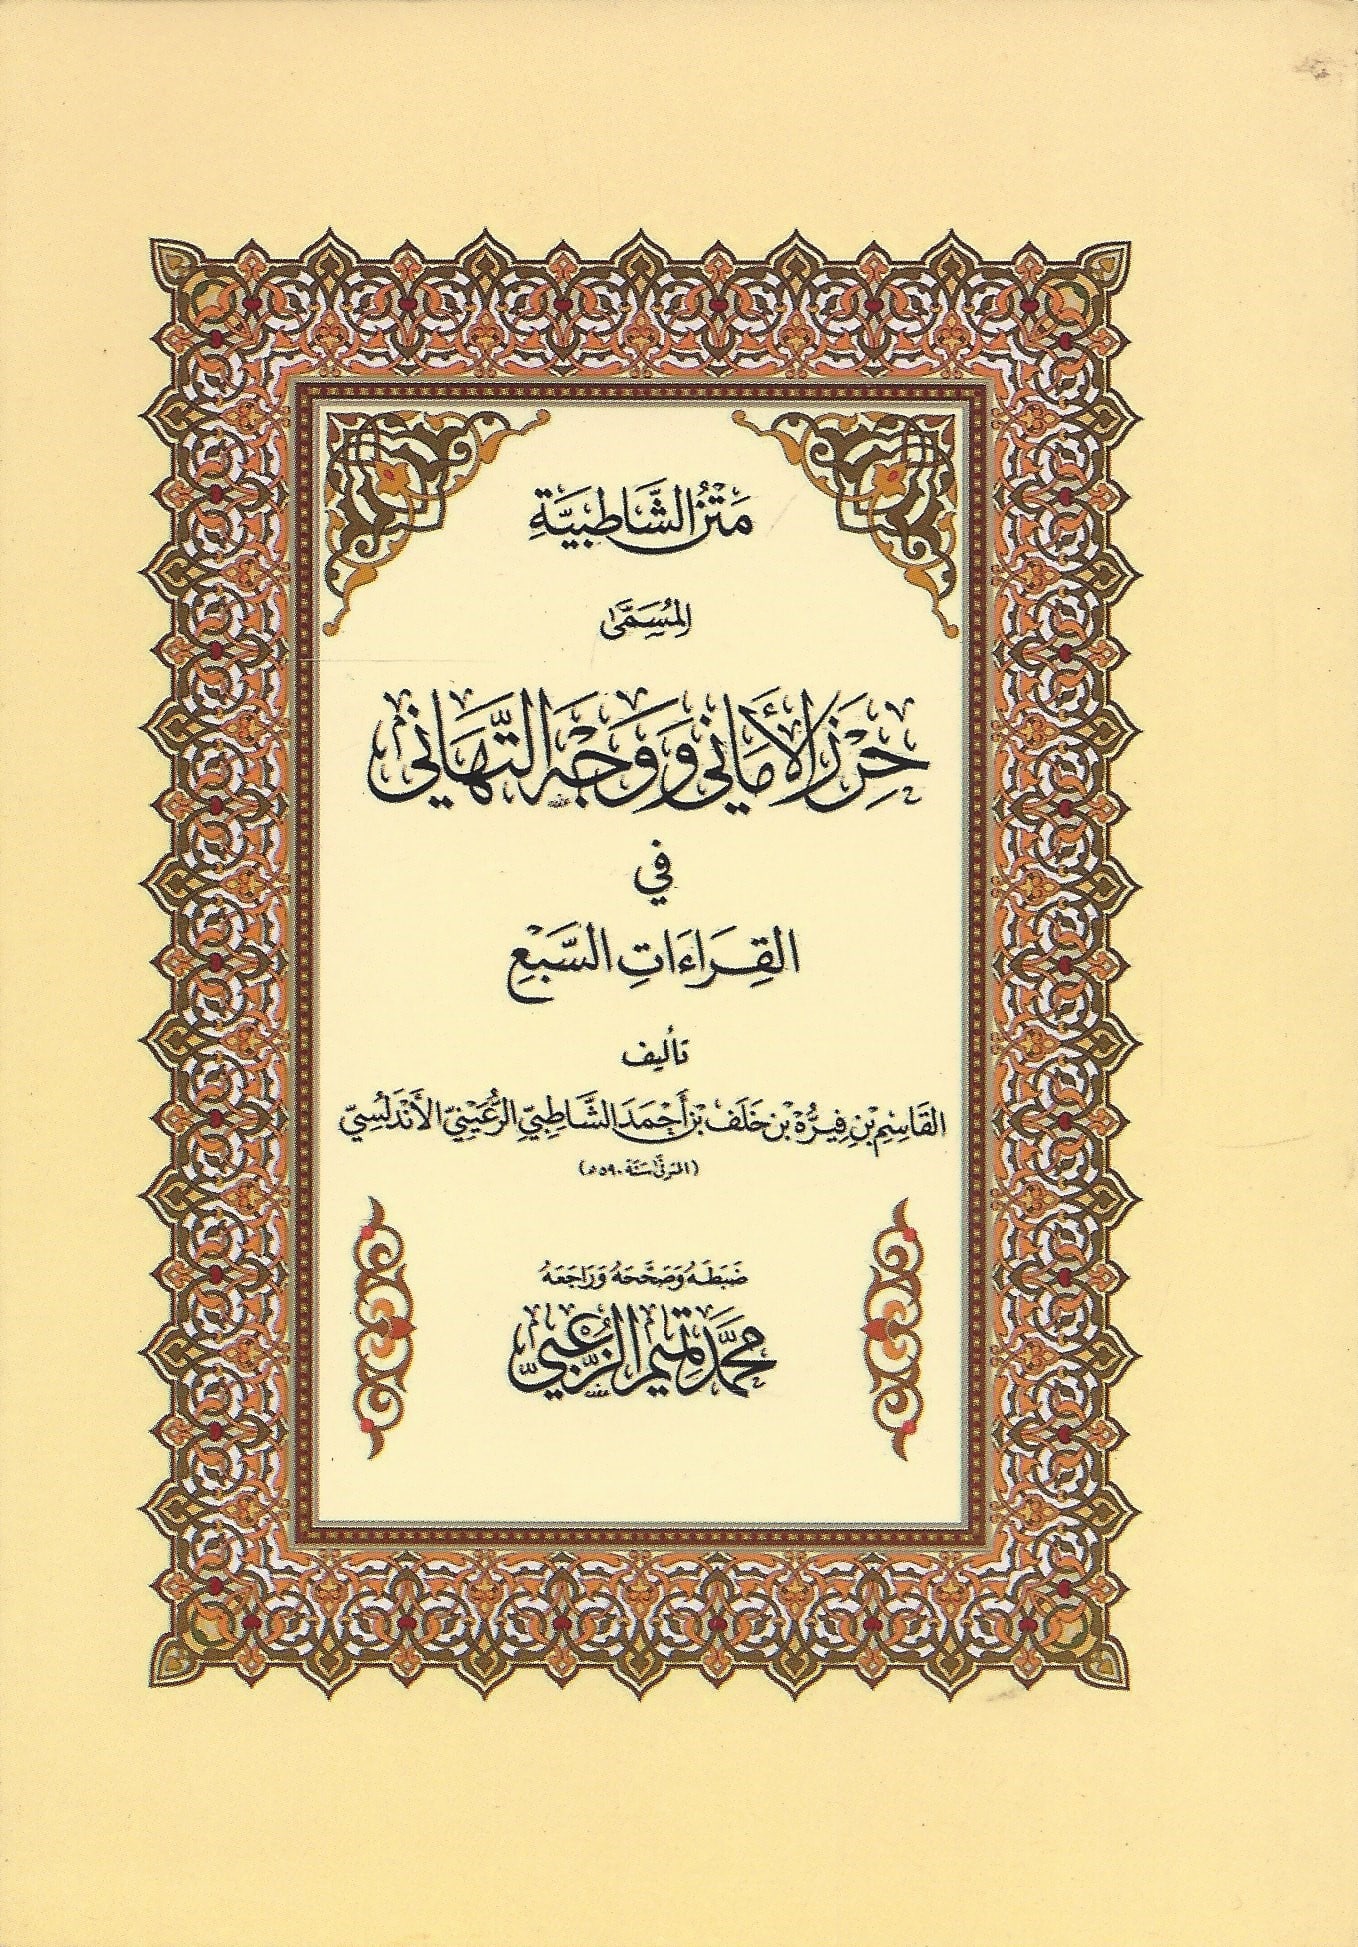 مَتْنُ الشَّاطِبِيَّةِ
المُسَمَّى
حِرْزَ الأَمَانِي وَوَجْهَ التَّهَانِي
في
القِرَاءَاتِ السَّبْعِ
تأليف
القَاسِمِ بْنِ فِيرُّهْ بْنِ خَلَفِ بْنِ أَحْمَدَ الشَّاطِبِيِّ الرُّعَيْنِيِّ الأَنْدَلُسِيِّ
(المتوفى سَنَة ٥٩٠ هـ)
ضَبَطَهُ وَصَحَّحَهُ وَرَاجَعَهُ
محَمَّد تَمِيم الزُّعْبِيّ